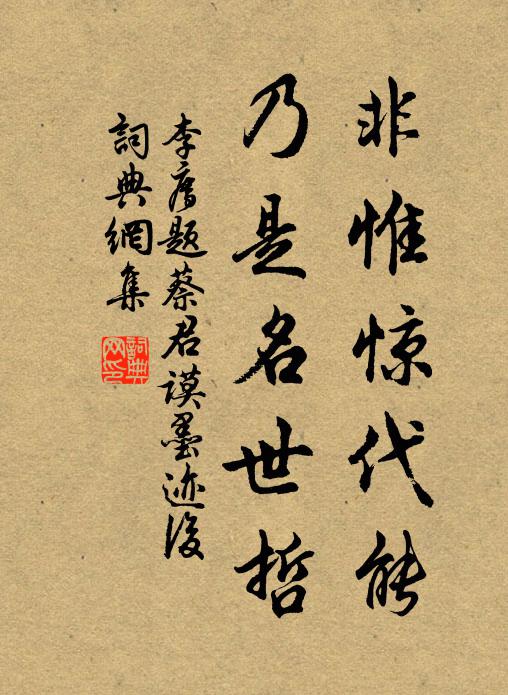 非惟惊代能
乃是名世哲
李廌题蔡君谟墨迹後
詞典網集
詞典网印